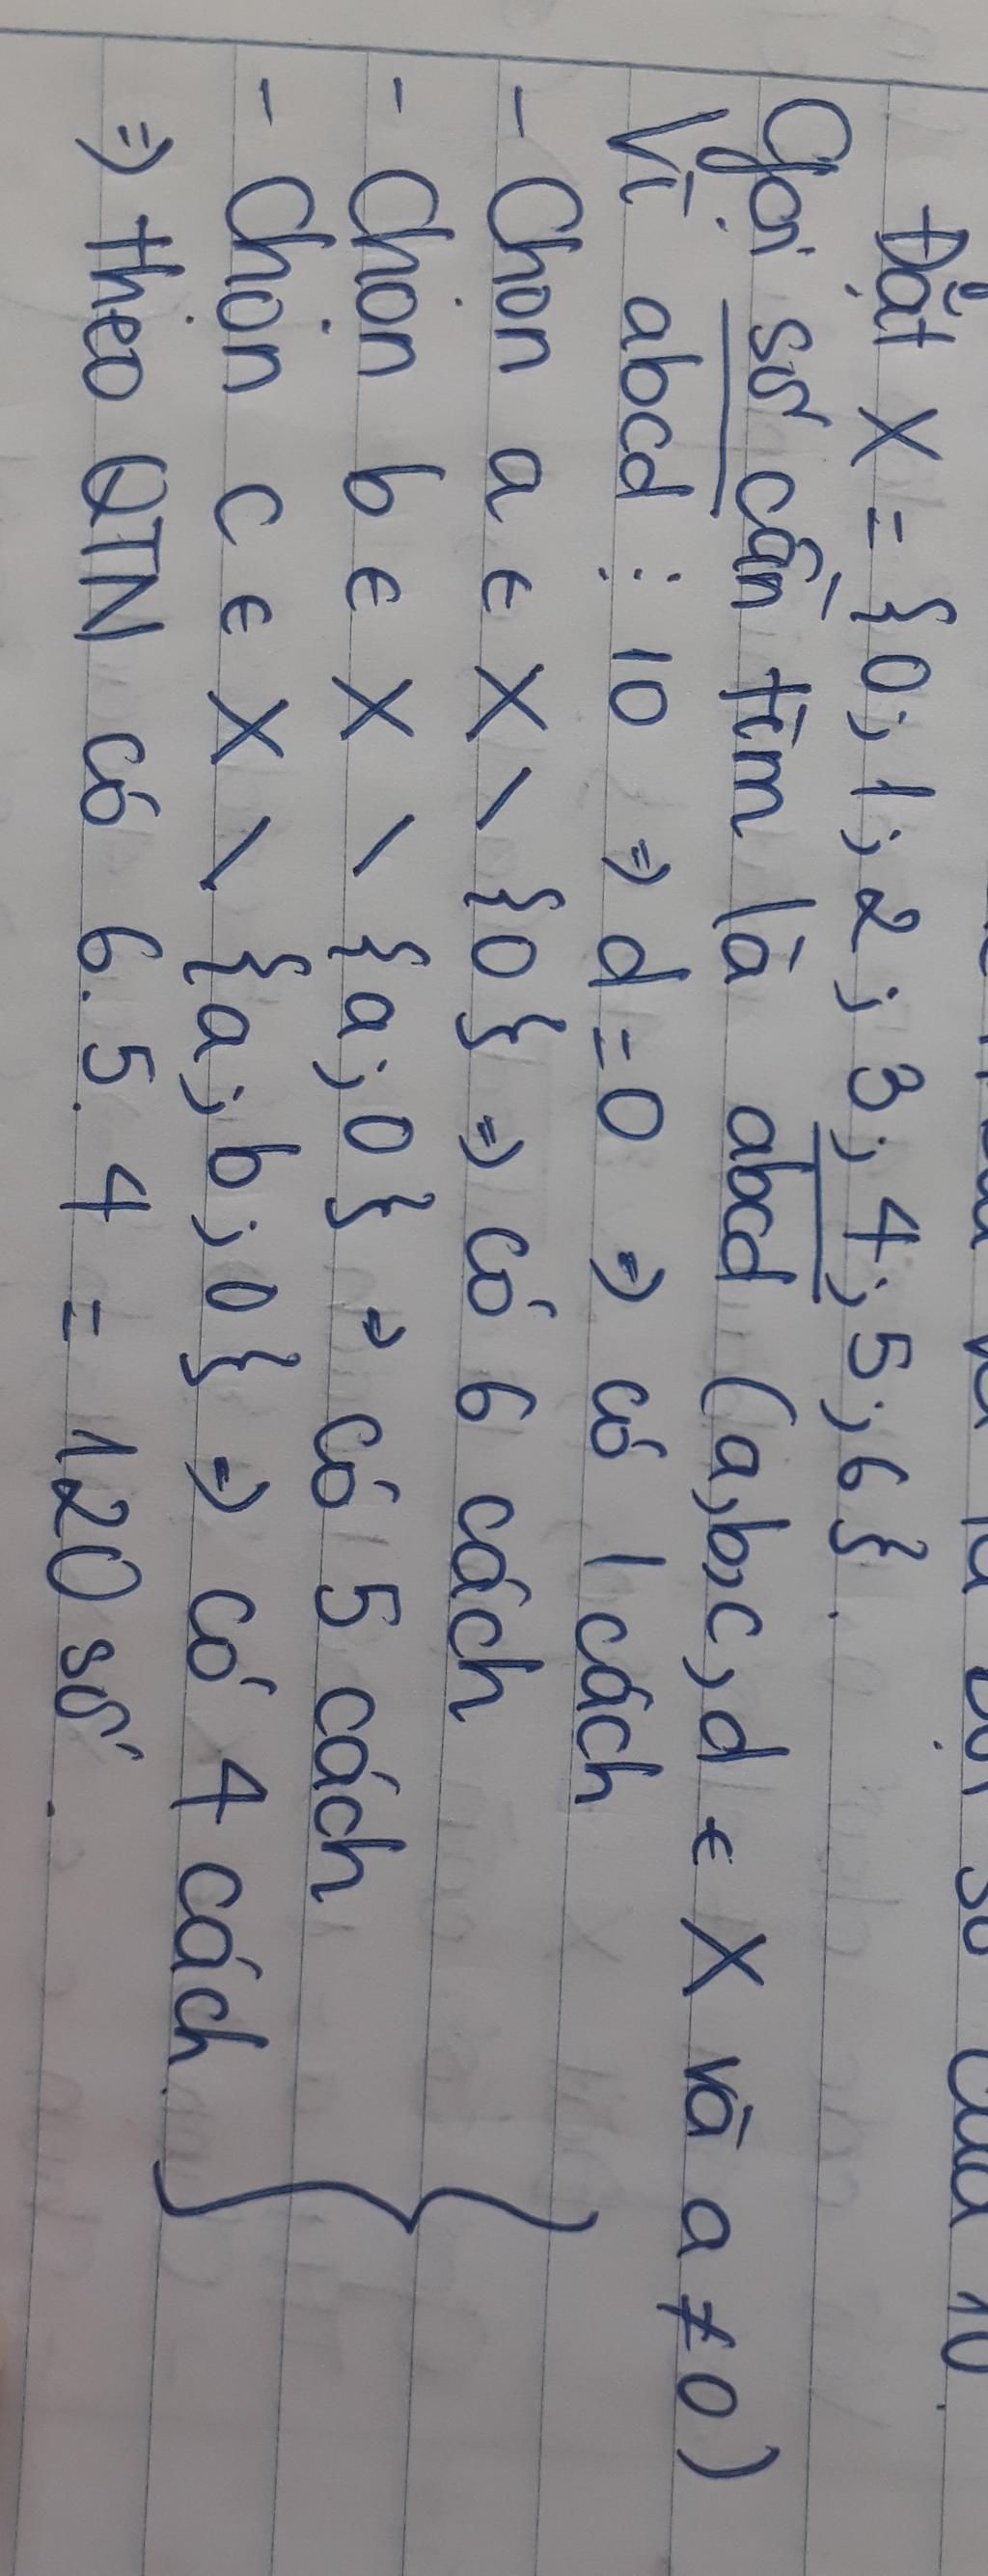 số của 10.
Đặt X = {0; 1; 2; 3; 4; 5; 6}.
Gọi số cần tìm là abcd (a,b,c,d ∈ X và a ≠ 0)
Vì abcd ⋮ 10 ⇒ d = 0 ⇒ có 1 cách
- Chọn a ∈ X \ {0} ⇒ có 6 cách
- Chọn b ∈ X \ {a; 0} ⇒ có 5 cách
- Chọn c ∈ X \ {a; b; 0} ⇒ có 4 cách
⇒ theo QTN có 6.5.4 = 120 số.